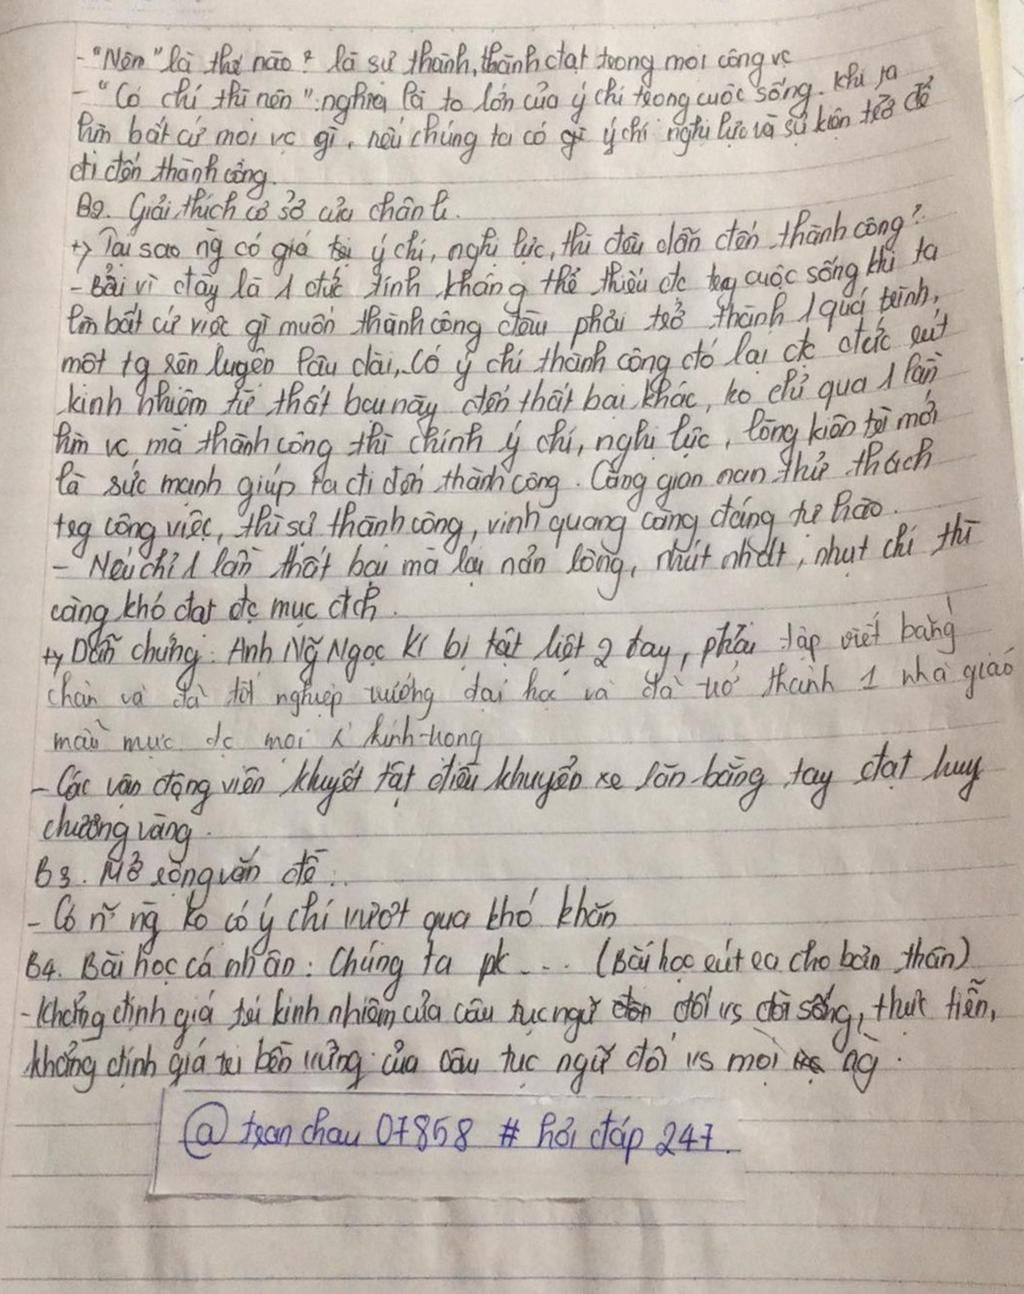 - "Nên" là thế nào? là sự thành, thành đạt trong mọi công vc
- "Có chí thì nên": nghĩa là to lớn của ý chí trong cuộc sống. khi ta
làm bất cứ mọi vc gì, nếu chúng ta có ý chí nghị lực và sự kiên trở để
đi đến thành công.
B2. Giải thích cơ sở của chân lí.
+) Tại sao ng có giá trị ý chí, nghị lực, thì đều dẫn đến thành công?
- Bởi vì đây là 1 đức tính không thể thiếu đc tog cuộc sống khi ta
làm bất cứ việc gì muốn thành công đều phải trở thành 1 quá trình,
một tg rèn luyện lâu dài, có ý chí thành công đó lại đc đức rút
kinh nhiệm từ thất bại này đến thất bại khác, ko chỉ qua 1 lần
làm vc mà thành công thì chính ý chí, nghị lực, lòng kiên trì mới
là sức mạnh giúp ta đi đến thành công. Càng gian nan thử thách
trg công việc, thì sự thành công, vinh quang càng đáng tự hào.
- Nếu chỉ 1 lần thất bại mà lại nản lòng, nhút nhát, nhụt chí thì
càng khó đạt đc mục đích.
+) Dẫn chứng: Anh Ng̃ Ngọc Kí bị tật liệt 2 tay, phải tập viết bằng
chân và đã tốt nghiệp trường đại học và đã trở thành 1 nhà giáo
mẫu mực đc mọi kính trọng
- Các vận động viên khuyết tật điều khuyển xe lăn bằng tay đạt huy
chương vàng.
B3. Mở rộng vấn đề.
- Có n~ ng ko có ý chí vượt qua khó khăn
B4. Bài học cá nhân: Chúng ta pk... (Bài học rút ra cho bản thân)
- Khẳng định giá trị kinh nhiệm của câu tục ngữ đối vs đời sống, thực tiễn,
khẳng định giá trị bền vững của câu tục ngữ đối vs mọi ng.
@ tranchau07858 # hỏi đáp 247.